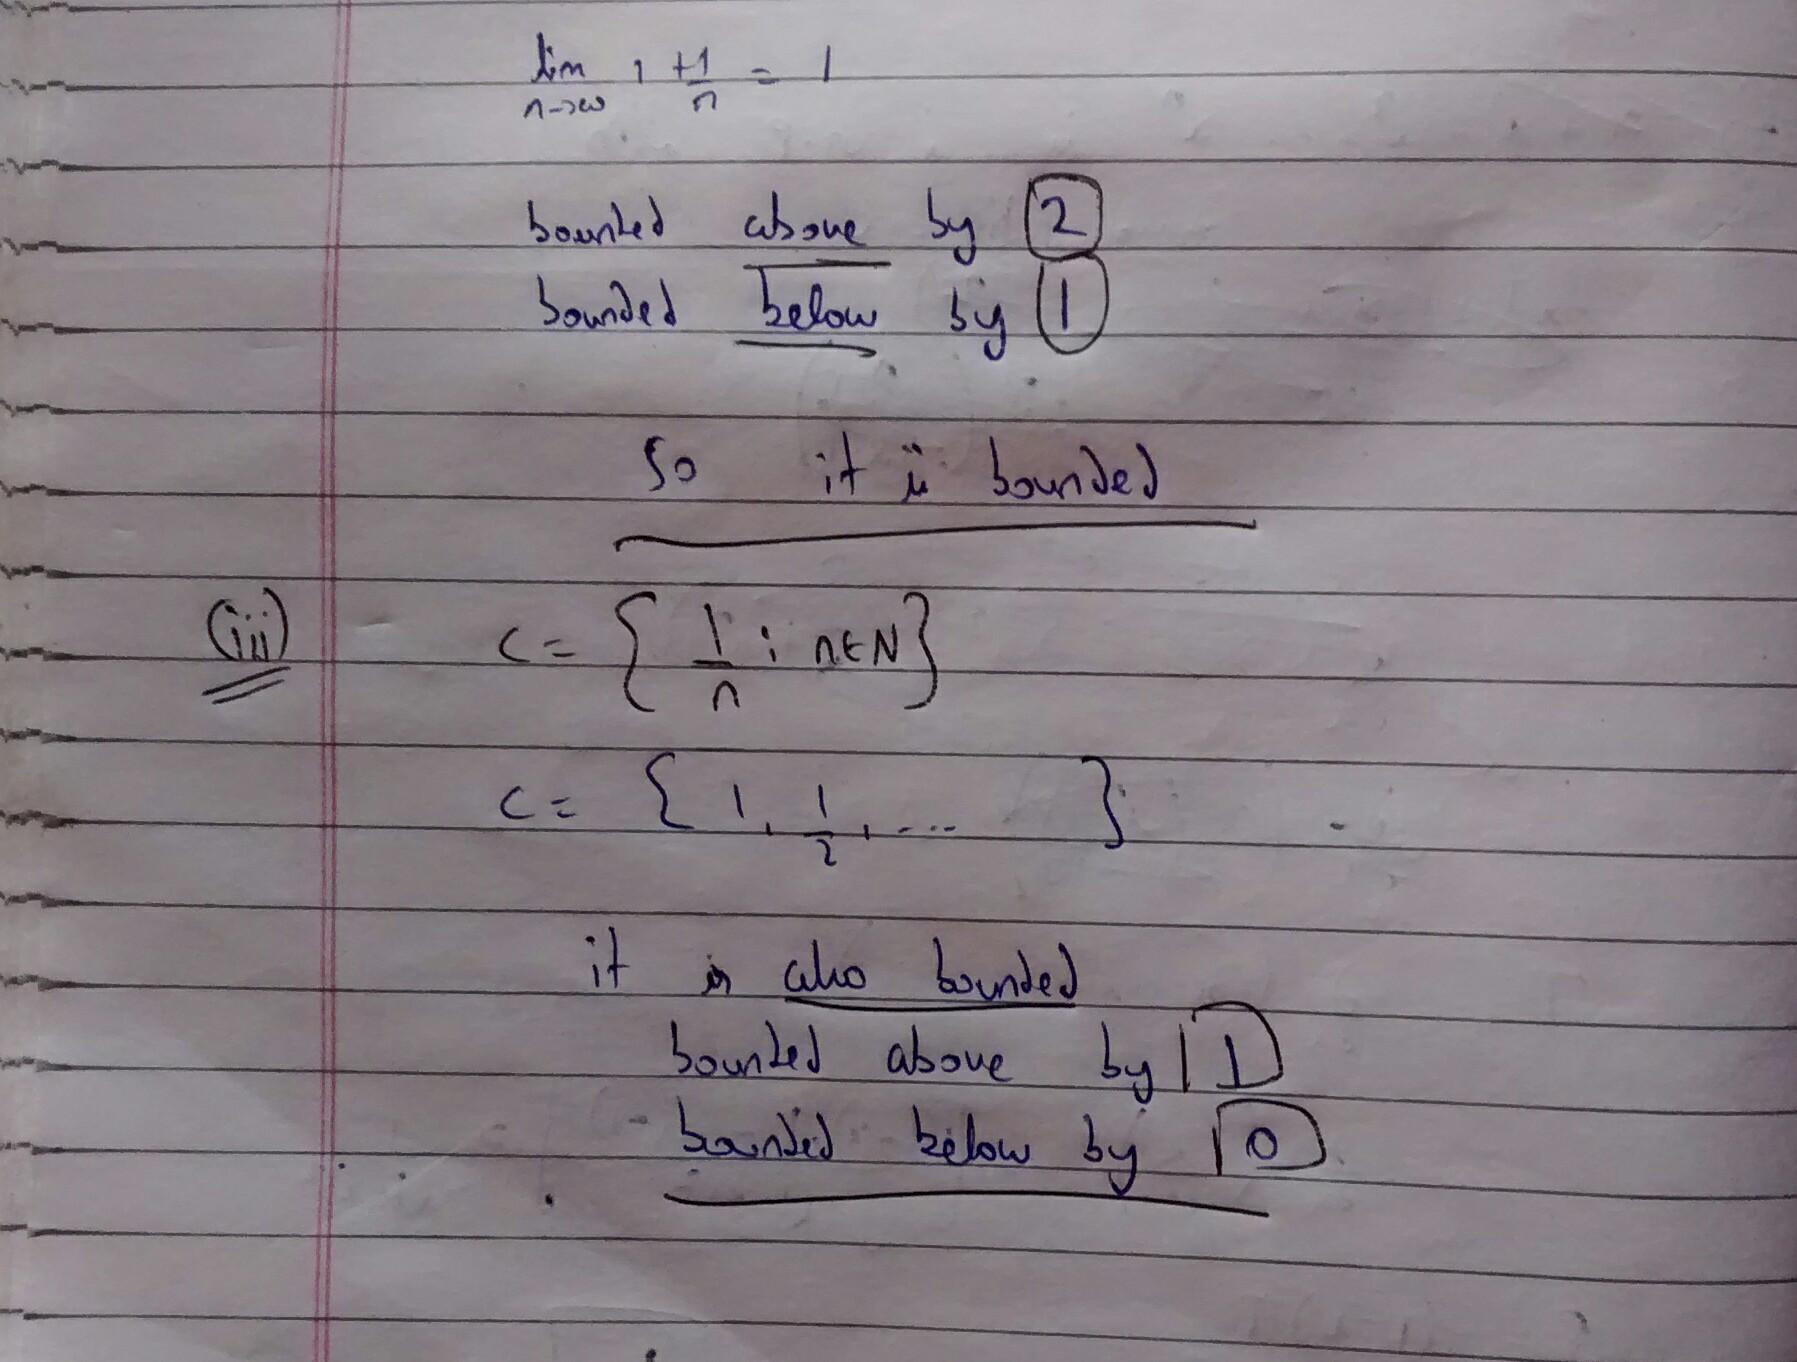 lim 1 + 1/n = 1
n→∞
bounded above by 2
bounded below by 1
So it is bounded
(iii) C = { 1/n ; n∈N }
C = { 1, 1/2, ... }
it is also bounded
bounded above by 1
bounded below by 0